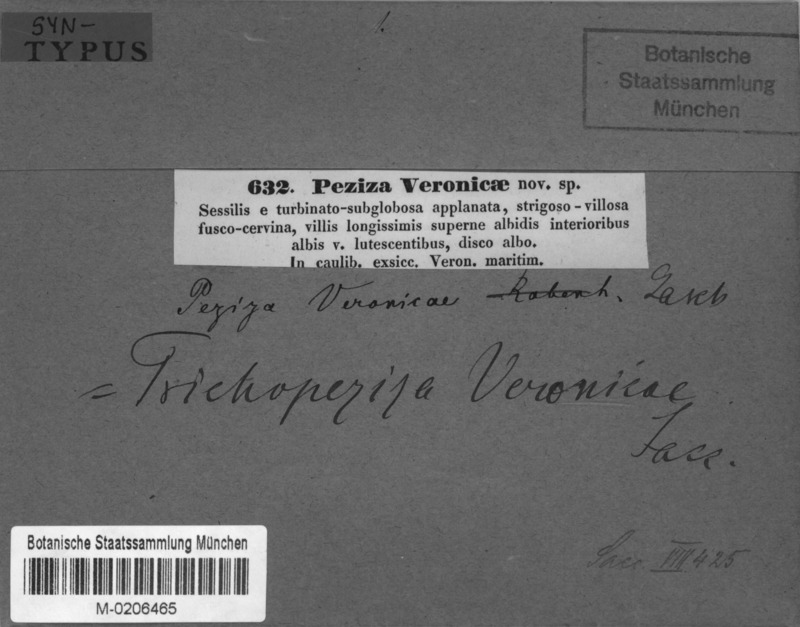 SYN-
TYPUS
Botanische
Staatssammlung
München
632. Peziza Veronicæ nov. sp.
Sessilis e turbinato-subglobosa applanata, strigoso-villosa
fusco-cervina, villis longissimis superne albidis interioribus
albis v. lutescentibus, disco albo.
In caulib. exsicc. Veron. maritim.
Peziza Veronicae Rabenh. Lasch
= Trichopeziza Veronicae
Sacc.
Sacc. VIII 425
Botanische Staatssammlung München
M-0206465